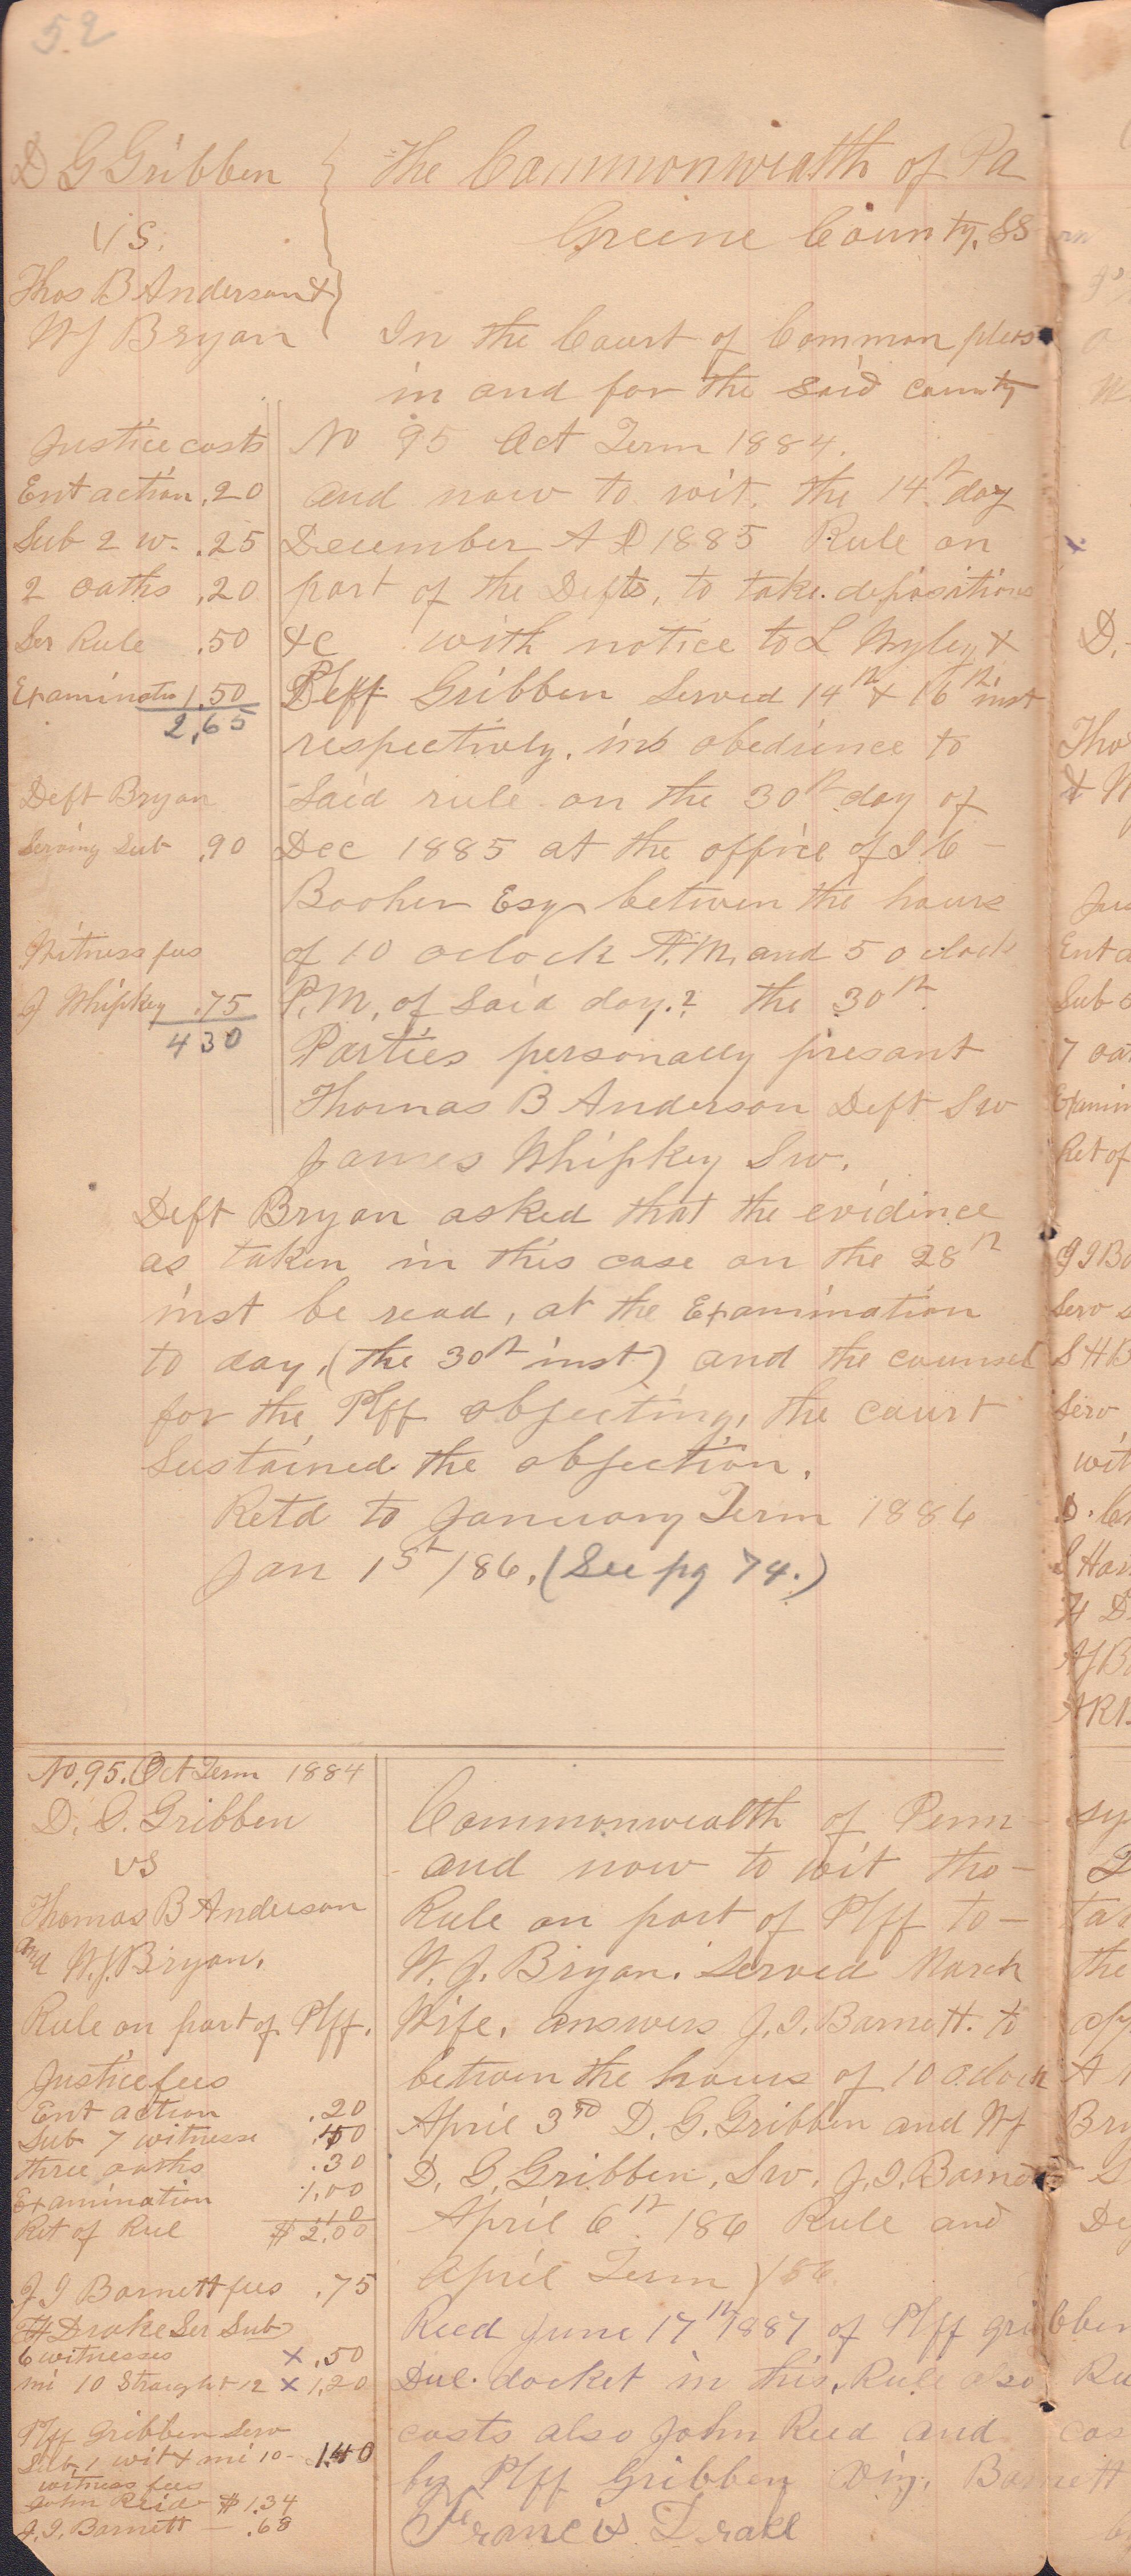 52
D G Gribben
vs.
Thos B Anderson &
W J Bryan
The Commonwealth of Pa
Greene County, SS
In the Court of Common pleas
in and for the said county
Justice costs
Ent action .20
Sub 2 w- .25
2 oaths .20
Ser Rule .50
Examination 1.50
2,65
Deft Bryan
Serving Sub .90
Witness fees
J Whipkey .75
430
No 95 Oct Term 1884.
and now to wit. the 14th day
December A D 1885 Rule on
part of the Defts, to take depositions
&c with notice to L Wyley &
Pleff Gribben Served 14th & 16th inst
respectivly. in obedience to
Said rule on the 30th day of
Dec 1885 at the office of J C
Booher Esq between the hours
of 10 oclock A.M, and 5 oclock
P.M, of Said day.? the 30th
Parties personally presant
Thomas B Anderson Deft Sw
James Whipkey Sw.
Deft Bryan asked that the evidince
as taken in this case on the 28th
inst be read, at the Examination
to day, (the 30th inst) and the counsel
for the Plff objecting, the court
Sustained the objection.
Retd to January Term 1886
Jan 1st /86, (See pg 74.)
No, 95. Oct Term 1884
D. G. Gribben
vs
Thomas B Anderson
and W. J. Bryan.
Rule on part of Plff.
Justice fees
Ent action .20
Sub 7 witnesse .40
three oaths .30
Examination 1.00
Ret of Rul .10
$ 2.00
J I Barnett fees .75
H Drake Ser Sub
6 witnesses x .50
mi 10 Straight 12 x 1,20
Plff Gribben Serv
Sub, 1 wit & mi 10- 1.40
witness fees
John Reid $1.34
J. I. Barnett - .68
Commonwealth of Penn
and now to wit tho-
Rule on part of Plff to-
W. J. Bryan. Served March
Wife, answers J. I. Barnett. to
betwen the hours of 10 Oclock
April 3rd D. G. Gribben and WJ
D. G. Gribben, Sw, J. I. Barnett
April 6th 186 Rule and
April Term /86
Recd June 17th 1887 of Plff gribben
docket in this, Rule also
costs also John Reed and
by Plff Gribben Barnett
Francis Drake